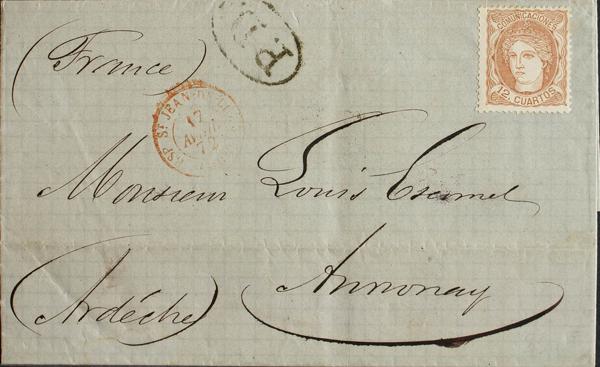 (France)
COMUNICACIONES
12. CUARTOS
ESP. ST JEAN-DE-LUZ
17
AVRIL
72
Monsieur Louis
Annonay
(Ardèche)